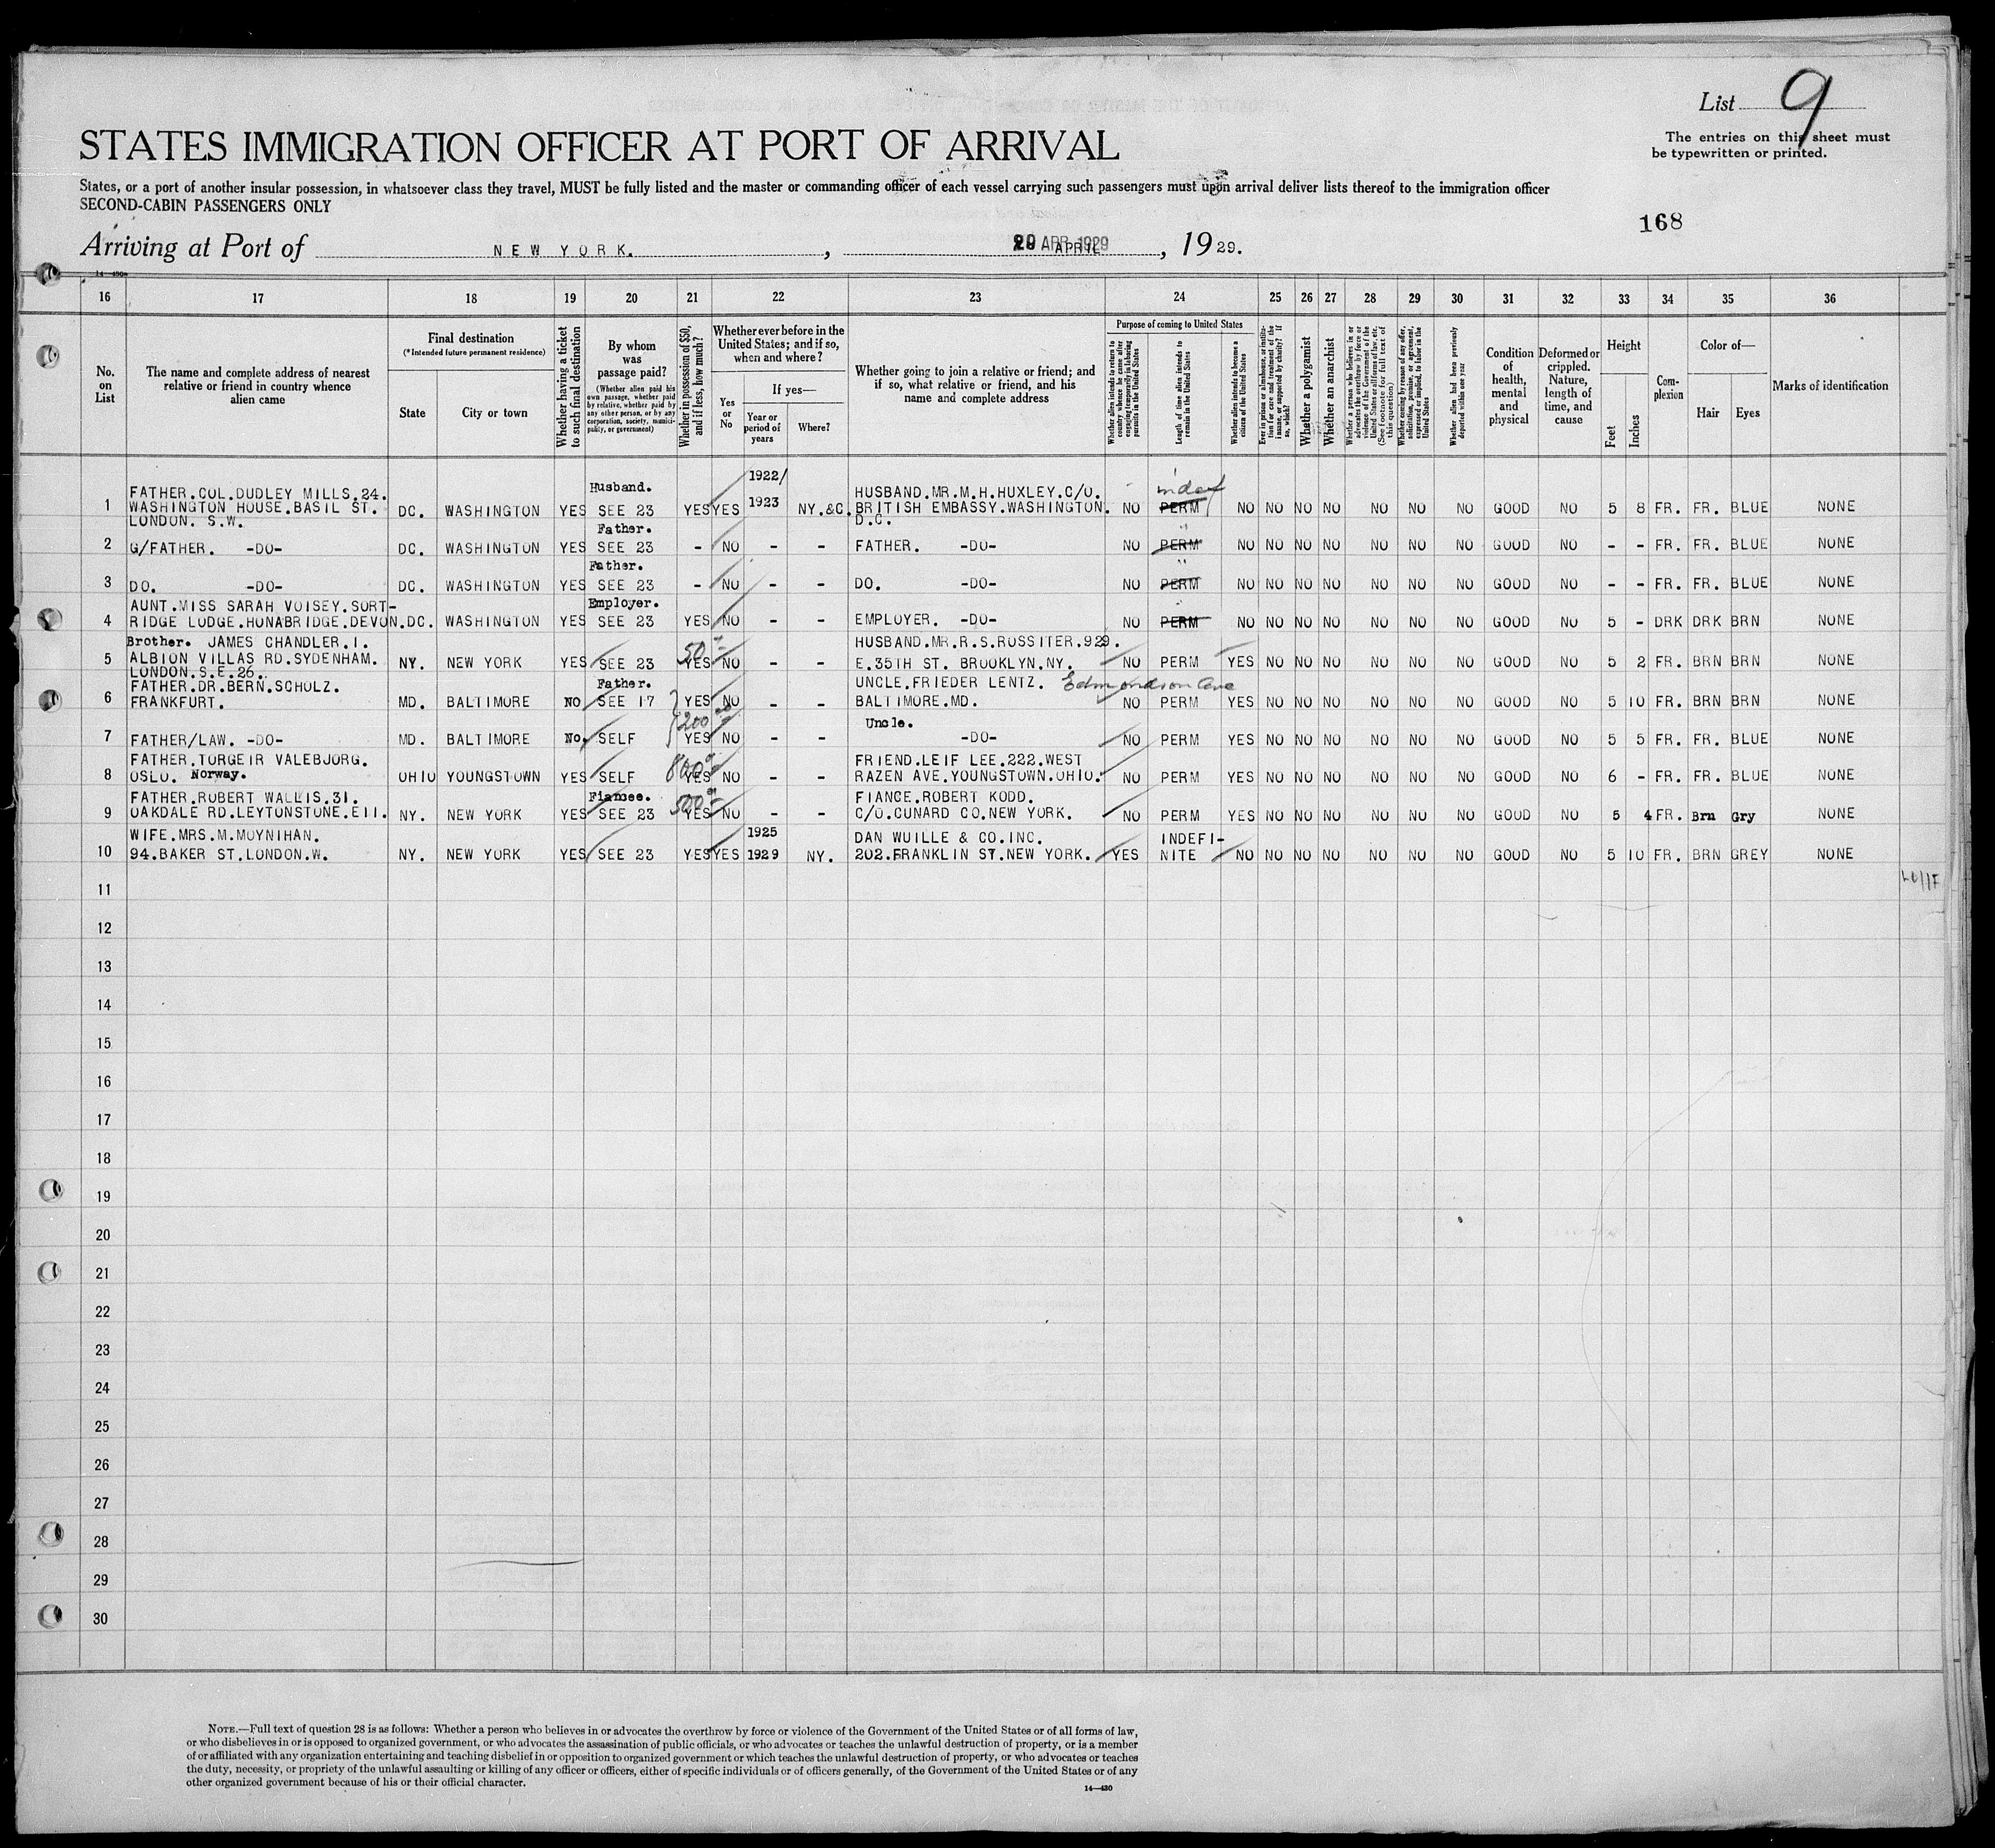 List 9
STATES IMMIGRATION OFFICER AT PORT OF ARRIVAL
The entries on this sheet must
be typewritten or printed.
States, or a port of another insular possession, in whatsoever class they travel, MUST be fully listed and the master or commanding officer of each vessel carrying such passengers must upon arrival deliver lists thereof to the immigration officer
SECOND-CABIN PASSENGERS ONLY
168
Arriving at Port of NEW YORK. , APRIL , 1929.
14—430
16 17 18 19 20 21 22 23 24 25 26 27 28 29 30 31 32 33 34 35 36
No. on List
The name and complete address of nearest relative or friend in country whence alien came
Final destination
(*Intended future permanent residence)
State
City or town
Whether having a ticket to such final destination
By whom was passage paid?
(Whether alien paid his own passage, whether paid by relative, whether paid by any other person, or by any corporation, society, municipality, or government)
Whether in possession of $50, and if less, how much?
Whether ever before in the United States; and if so, when and where?
Yes or No
If yes—
Year or period of years
Where?
Whether going to join a relative or friend; and if so, what relative or friend, and his name and complete address
Purpose of coming to United States
Whether alien intends to return to country whence he came after engaging temporarily in laboring pursuits in the United States
Length of time alien intends to remain in the United States
Whether alien intends to become a citizen of the United States
Ever in prison or almshouse, or institution for care and treatment of the insane, or supported by charity? If so, which?
Whether a polygamist
Whether an anarchist
Whether a person who believes in or advocates the overthrow by force or violence of the Government of the United States or all forms of law, etc. (See footnote for full text of this question)
Whether coming by reason of any offer, solicitation, promise, or agreement, expressed or implied, to labor in the United States
Whether alien had been previously deported within one year
Condition of health, mental and physical
Deformed or crippled. Nature, length of time, and cause
Height
Feet
Inches
Complexion
Color of—
Hair
Eyes
Marks of identification
Husband. 1922/ indef
FATHER.COL.DUDLEY MILLS.24. HUSBAND.MR.M.H.HUXLEY.C/O.
1 WASHINGTON HOUSE.BASIL ST. DC. WASHINGTON YES SEE 23 YES YES 1923 NY.&C. BRITISH EMBASSY.WASHINGTON. NO PERM NO NO NO NO NO NO NO GOOD NO 5 8 FR. FR. BLUE NONE
LONDON. S.W. D.C.
Father. "
2 G/FATHER. -DO- DC. WASHINGTON YES SEE 23 - NO - - FATHER. -DO- NO PERM NO NO NO NO NO NO NO GOOD NO - - FR. FR. BLUE NONE
Father. "
3 DO. -DO- DC. WASHINGTON YES SEE 23 - NO - - DO. -DO- NO PERM NO NO NO NO NO NO NO GOOD NO - - FR. FR. BLUE NONE
AUNT.MISS SARAH VOISEY.SORT- Employer. "
4 RIDGE LODGE.HONABRIDGE.DEVON. DC. WASHINGTON YES SEE 23 YES NO - - EMPLOYER. -DO- NO PERM NO NO NO NO NO NO NO GOOD NO 5 - DRK DRK BRN NONE
Brother. JAMES CHANDLER.1. 50 HUSBAND.MR.R.S.ROSSITER.929.
5 ALBION VILLAS RD.SYDENHAM. NY. NEW YORK YES SEE 23 YES NO - - E.35TH ST. BROOKLYN.NY. NO PERM YES NO NO NO NO NO NO GOOD NO 5 2 FR. BRN BRN NONE
LONDON.S.E.26.
FATHER.DR.BERN.SCHOLZ. Father. UNCLE.FRIEDER LENTZ. Edmondson Ave
6 FRANKFURT. MD. BALTIMORE NO SEE 17 YES NO - - BALTIMORE.MD. NO PERM YES NO NO NO NO NO NO GOOD NO 5 10 FR. BRN BRN NONE
200 Uncle.
7 FATHER/LAW. -DO- MD. BALTIMORE No. SELF YES NO - - -DO- NO PERM YES NO NO NO NO NO NO GOOD NO 5 5 FR. FR. BLUE NONE
FATHER.TORGEIR VALEBJORG. 800 FRIEND.LEIF LEE.222.WEST
8 OSLO. Norway. OHIO YOUNGSTOWN YES SELF YES NO - - RAZEN AVE.YOUNGSTOWN.OHIO. NO PERM YES NO NO NO NO NO NO GOOD NO 6 - FR. FR. BLUE NONE
FATHER.ROBERT WALLIS.31. Fiancee. 500 FIANCE.ROBERT KODD.
9 OAKDALE RD.LEYTONSTONE.E11. NY. NEW YORK YES SEE 23 YES NO - - C/O.CUNARD CO.NEW YORK. NO PERM YES NO NO NO NO NO NO GOOD NO 5 4 FR. Brn Gry NONE
WIFE.MRS.M.MOYNIHAN. 1925 DAN WUILLE & CO.INC. INDEFI-
10 94.BAKER ST.LONDON.W. NY. NEW YORK YES SEE 23 YES YES 1929 NY. 202.FRANKLIN ST.NEW YORK. YES NITE NO NO NO NO NO NO NO GOOD NO 5 10 FR. BRN GREY NONE
11
12
13
14
15
16
17
18
19
20
21
22
23
24
25
26
27
28
29
30
NOTE.—Full text of question 28 is as follows: Whether a person who believes in or advocates the overthrow by force or violence of the Government of the United States or of all forms of law,
or who disbelieves in or is opposed to organized government, or who advocates the assassination of public officials, or who advocates or teaches the unlawful destruction of property, or is a member
of or affiliated with any organization entertaining and teaching disbelief in or opposition to organized government or which teaches the unlawful destruction of property, or who advocates or teaches
the duty, necessity, or propriety of the unlawful assaulting or killing of any officer or officers, either of specific individuals or of officers generally, of the Government of the United States or of any
other organized government because of his or their official character.
14—430